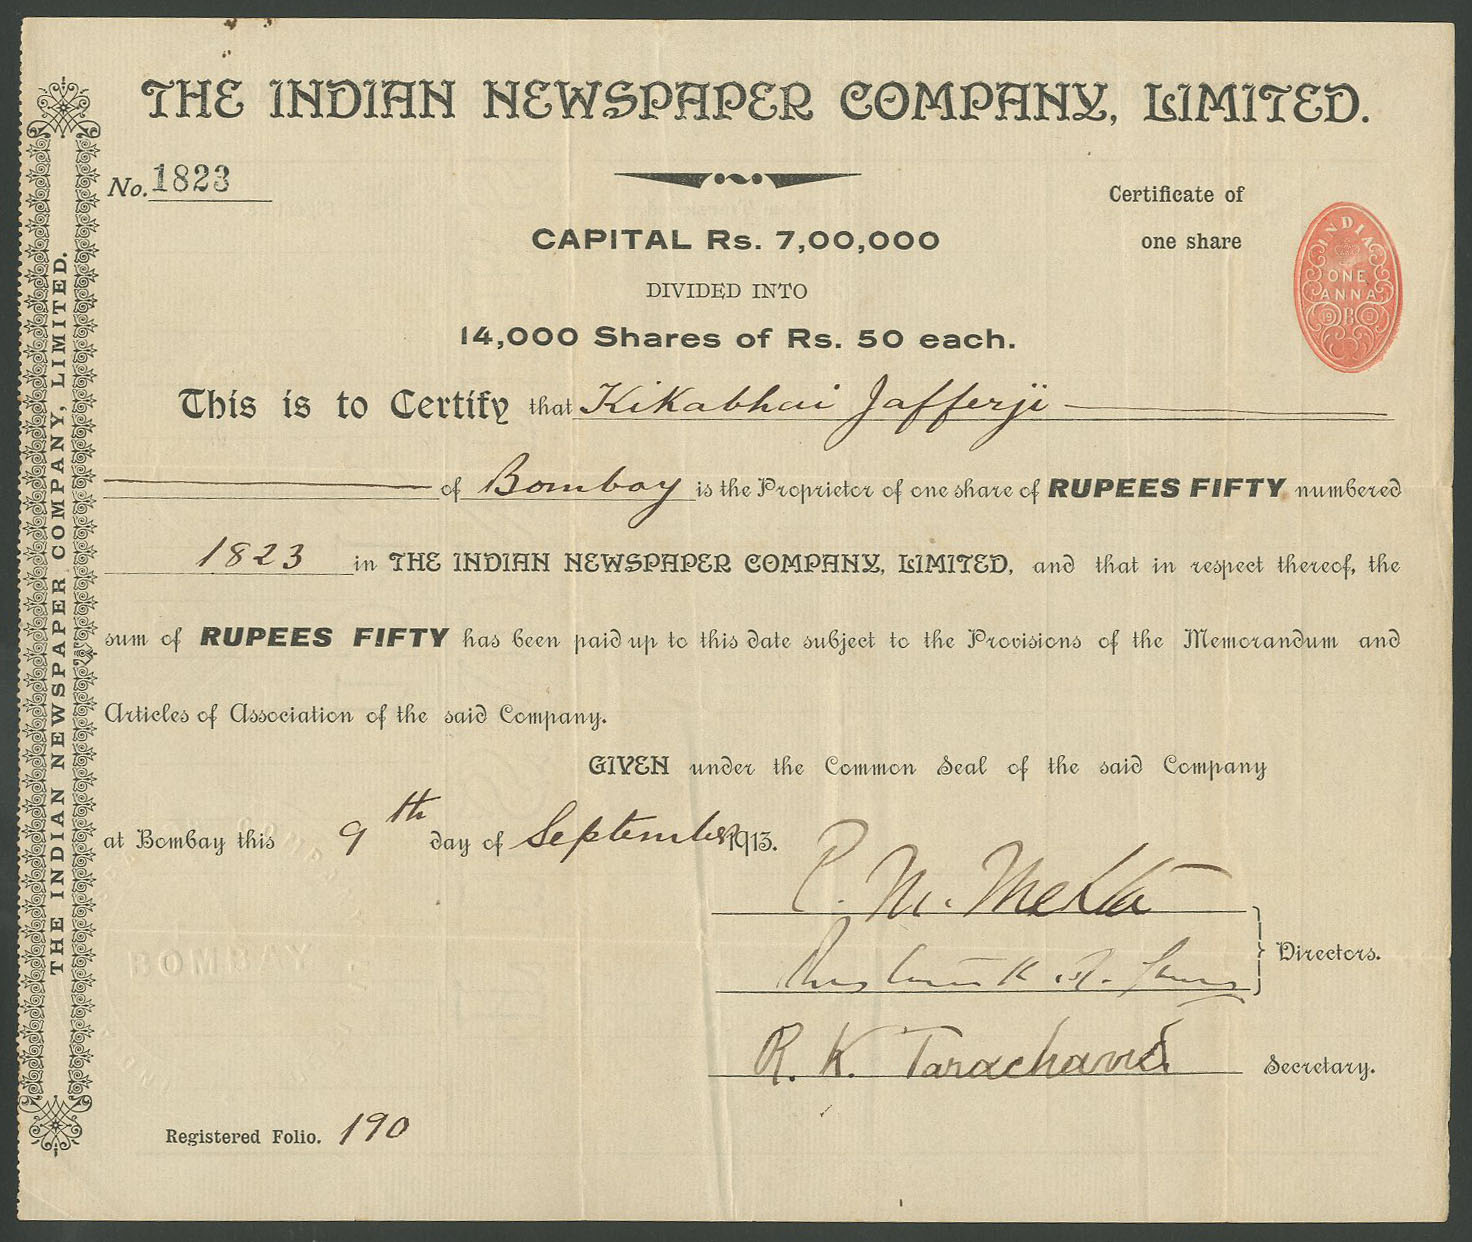 THE INDIAN NEWSPAPER COMPANY, LIMITED.
No. 1823
Certificate of
one share
INDIA
ONE
ANNA
CAPITAL Rs. 7,00,000
DIVIDED INTO
14,000 Shares of Rs. 50 each.
This is to Certify that Kikabhai Jafferji
of Bombay is the Proprietor of one share of RUPEES FIFTY numbered
1823 in THE INDIAN NEWSPAPER COMPANY, LIMITED, and that in respect thereof, the
sum of RUPEES FIFTY has been paid up to this date subject to the Provisions of the Memorandum and
Articles of Association of the said Company.
GIVEN under the Common Seal of the said Company
at Bombay this 9th day of September 1913.
P. M. Mehta
Directors.
R. K. Tarachand.
Secretary.
BOMBAY
Registered Folio. 190
THE INDIAN NEWSPAPER COMPANY, LIMITED.